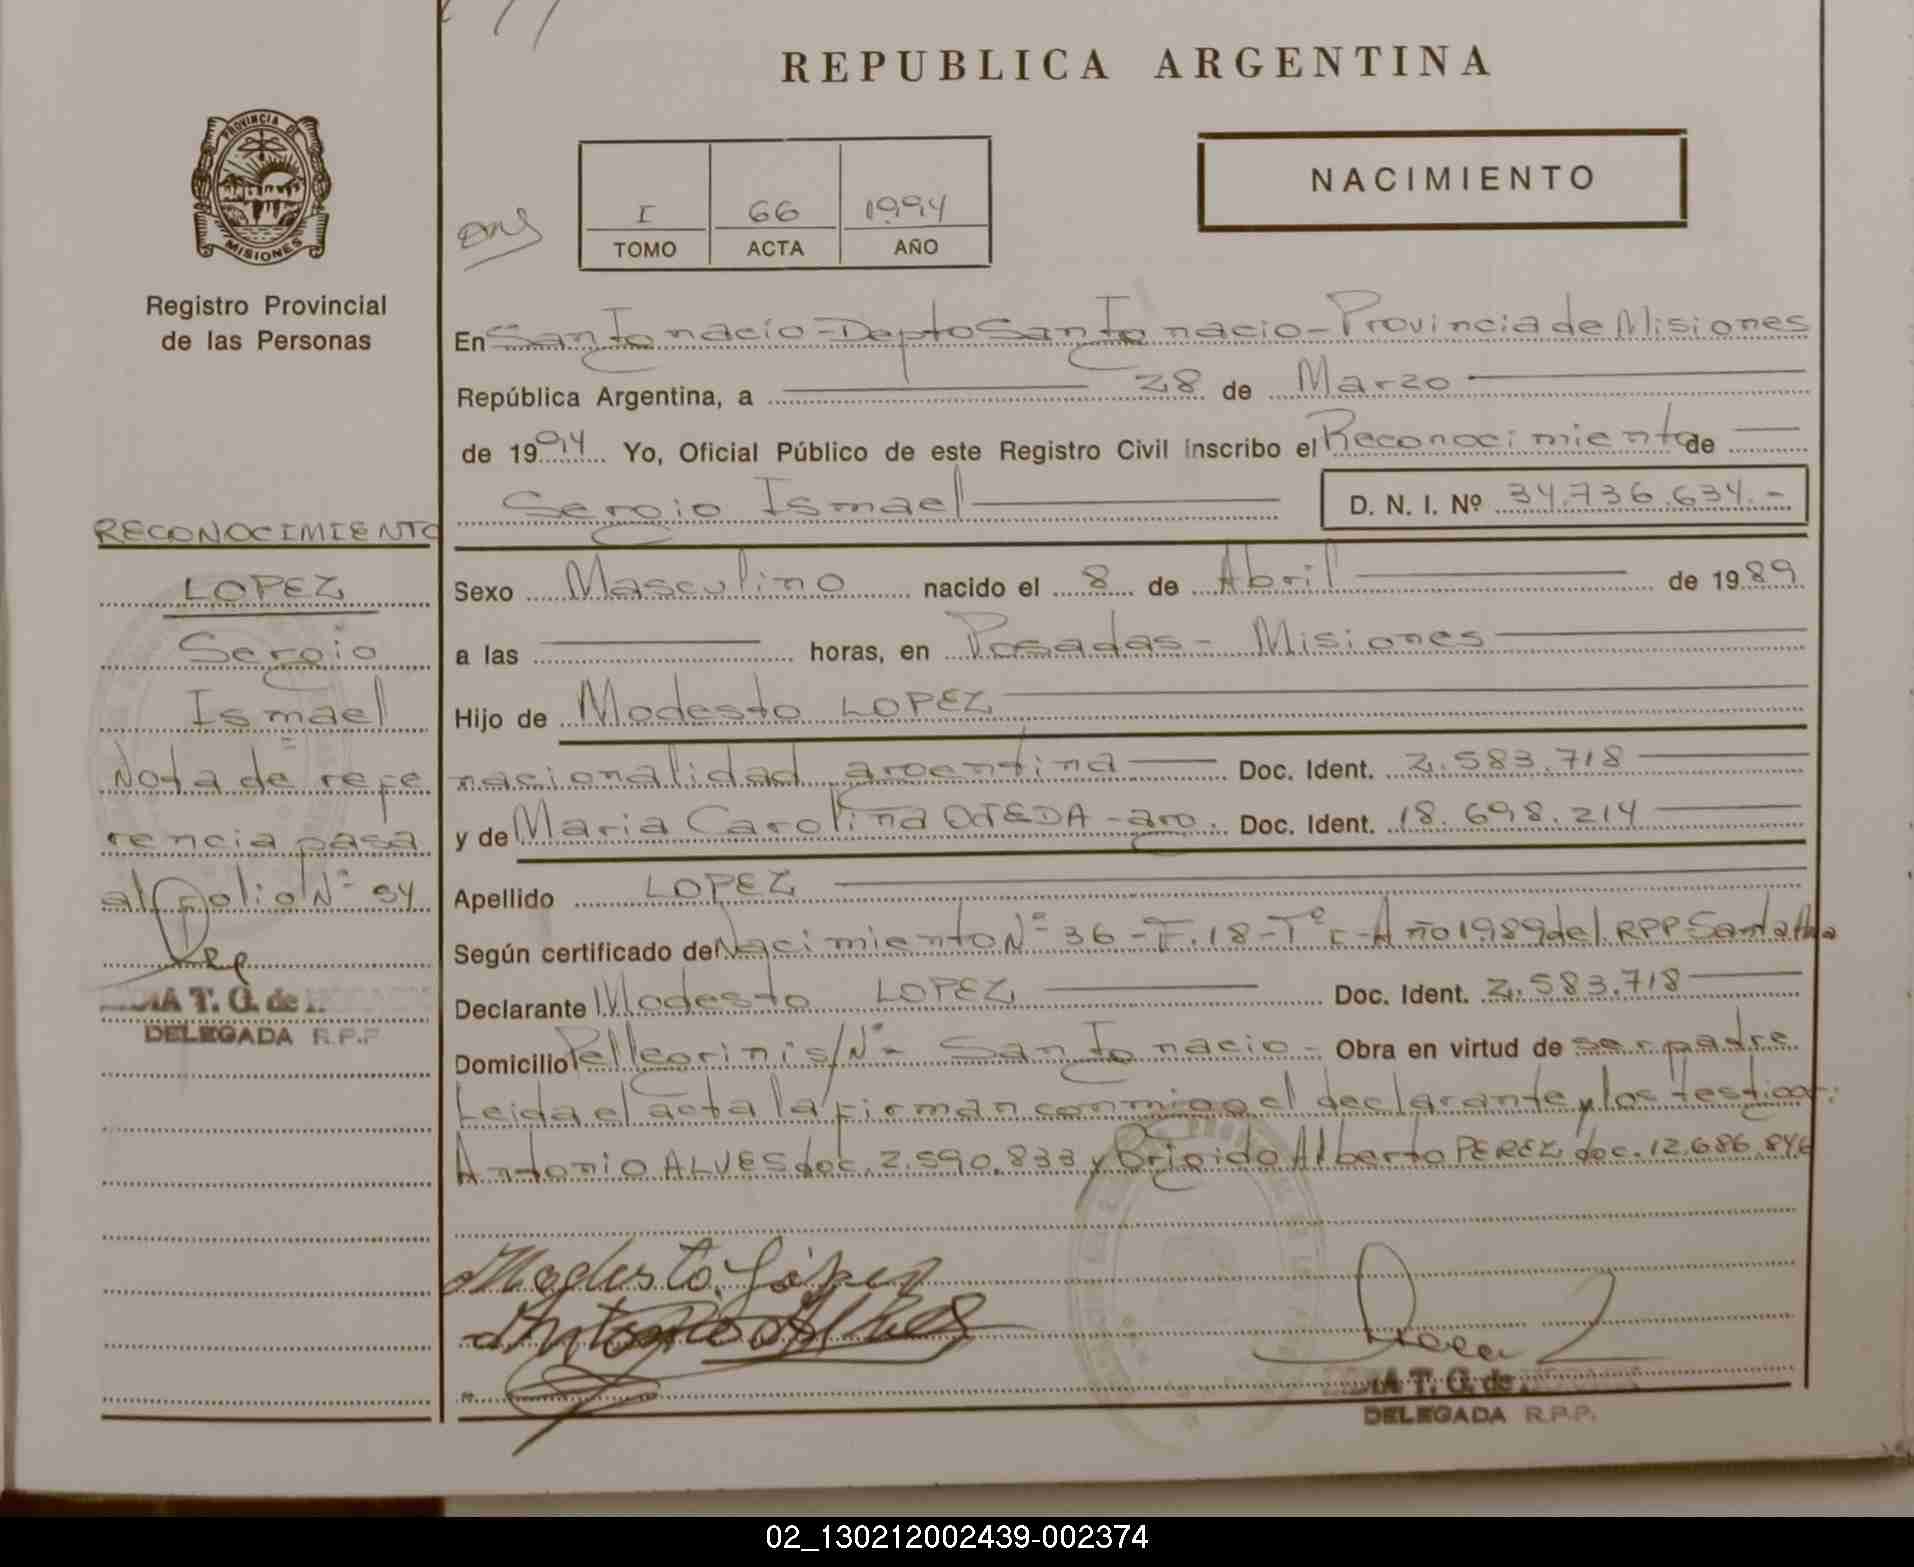 REPUBLICA ARGENTINA
PROVINCIA DE
MISIONES
Registro Provincial
de las Personas
NACIMIENTO
I 66 1994
TOMO ACTA AÑO
En San Ignacio - Depto San Ignacio - Provincia de Misiones
República Argentina, a 28 de Marzo
de 1994 Yo, Oficial Público de este Registro Civil inscribo el Reconocimiento de
Sergio Ismael D. N. I. Nº 34.736.634.-
Sexo Masculino nacido el 8 de Abril de 1989
a las horas, en Posadas - Misiones
Hijo de Modesto LOPEZ
nacionalidad argentina Doc. Ident. 2.583.718
y de Maria Carolina OJEDA - arg. Doc. Ident. 18.698.214
Apellido LOPEZ
Según certificado de Nacimiento Nº 36 - F. 18 - Tº I - Año 1989 del RPP Santa Ana
Declarante Modesto LOPEZ Doc. Ident. 2.583.718
Domicilio Pellegrini s/Nº San Ignacio - Obra en virtud de ser padre
Leida el acta la firman conmigo el declarante y los testigos:
Antonio ALVES doc. 2.590.833 y Brigido Alberto PEREZ doc. 12.686.846
Modesto López
Antonio Alves
T. G. de
DELEGADA R.P.P.
RECONOCIMIENTO
LOPEZ
Sergio
Ismael
Nota de refe
rencia pasa
al folio Nº 94
T. G. de
DELEGADA R.P.P
02_130212002439-002374